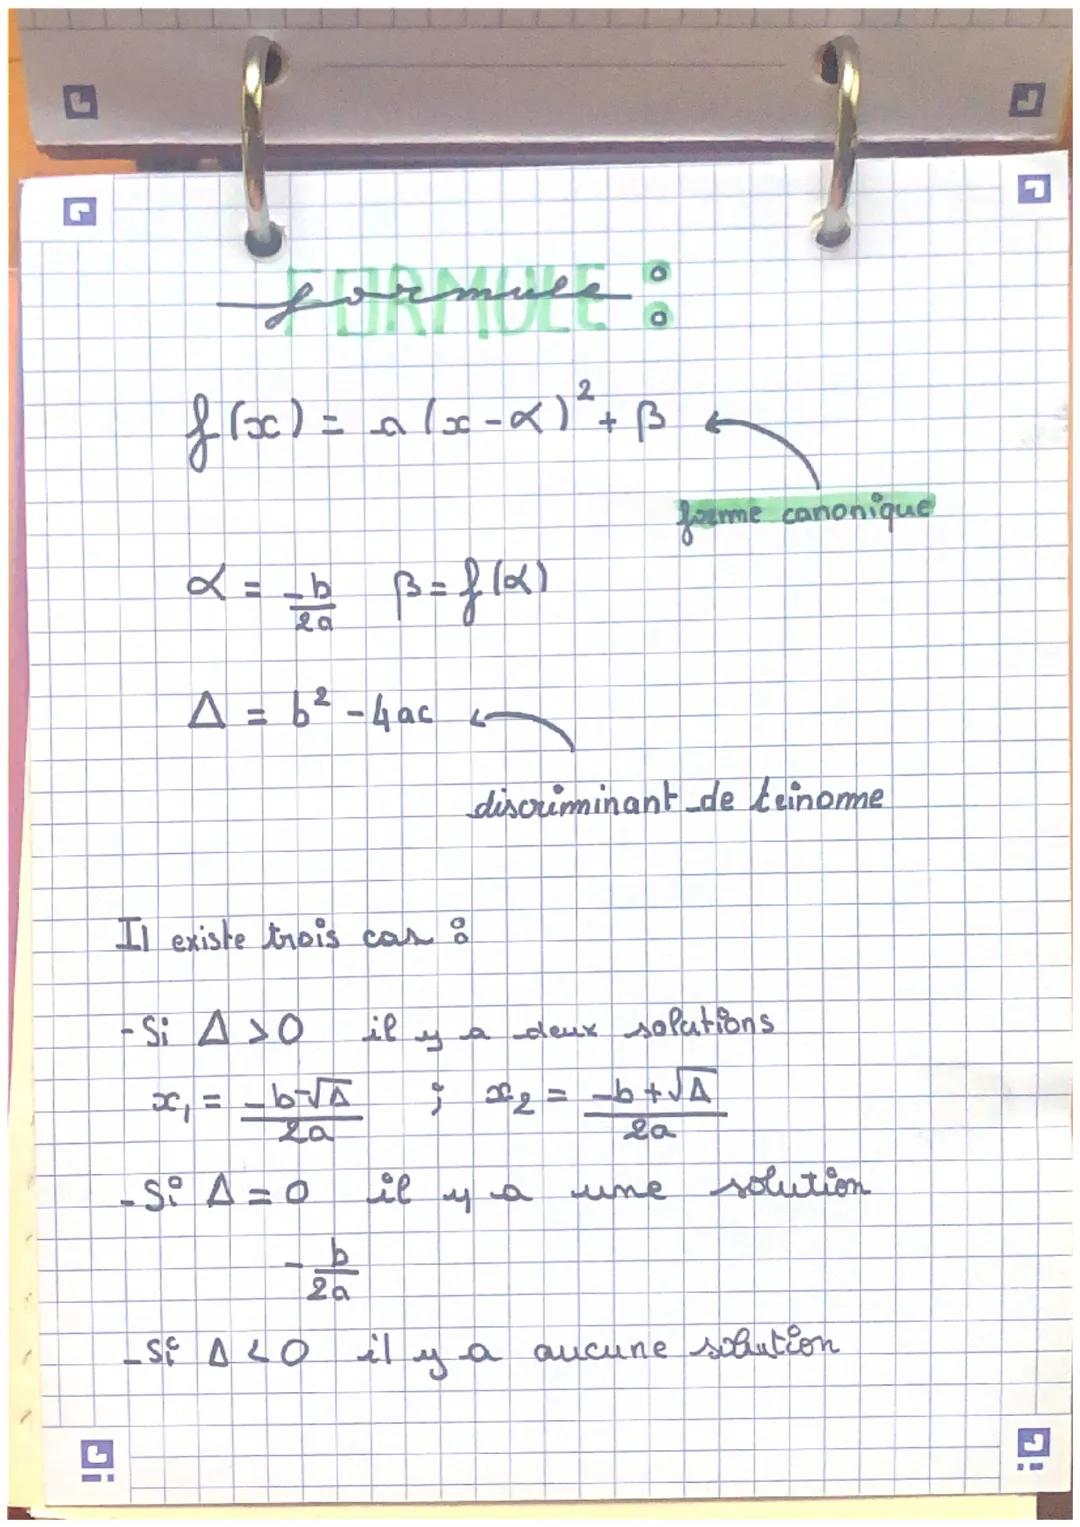 formule :
FORMULE
f(x) = a(x-α)² + β
forme canonique
α = -b/2a  β = f(α)
Δ = b² - 4ac
discriminant de trinome
Il existe trois cas :
- Si Δ > 0 il y a deux solutions
x₁ = -b-√Δ/2a ; x₂ = -b+√Δ/2a
- Si Δ = 0 il y a une solution
-b/2a
- Si Δ < 0 il y a aucune solution